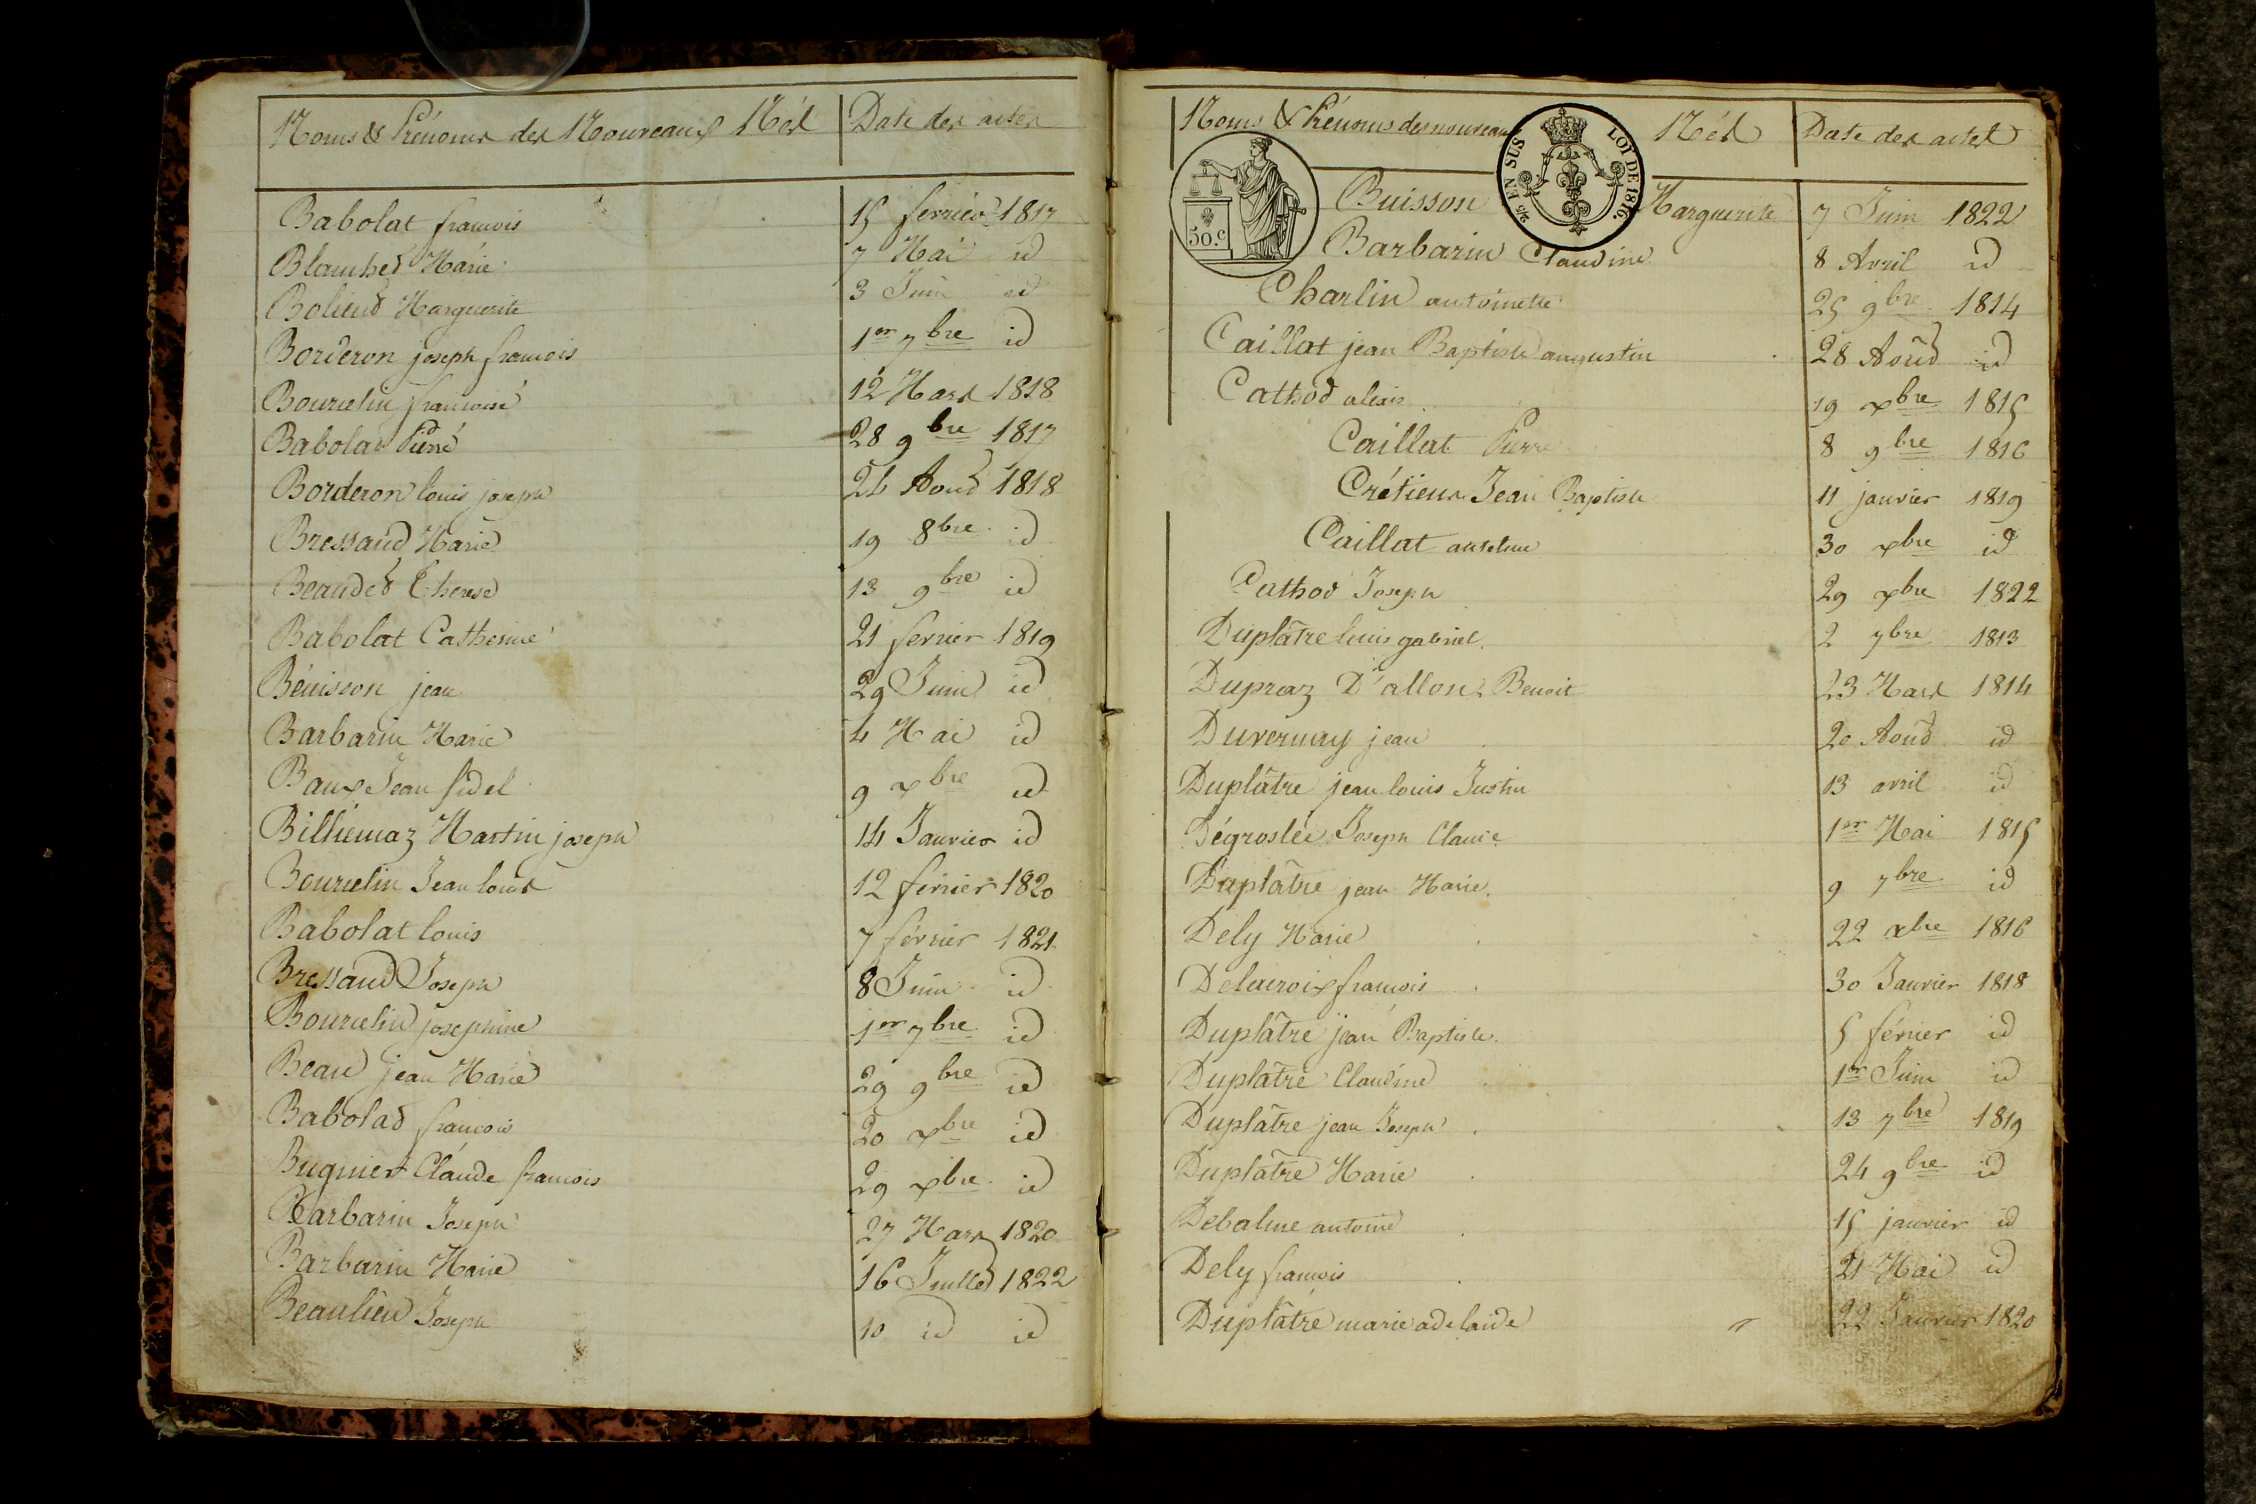 Noms & Prénoms des Nouveaux Nés Date des actes
Babolat francois 15 fevrier 1817
Blanched Marie 7 Mai id
Boliend Marguerite 3 Juin id
Borderon joseph francois 1er 7bre id
Bourcelin francoise 12 Mars 1818
Babolat Pierre 28 9bre 1817
Borderon louis joseph 24 Aoud 1818
Bressaud Marie 19 8bre id
Beauded Therese 13 9bre id
Babolat Catherine 21 fevrier 1819
Bénisson jean 29 Juin id
Barbarin Marie 4 Mai id
Baux Jean fidel 9 xbre id
Billiemaz Martin joseph 14 Janvier id
Bourcelin Jean louis 12 février 1820
Babolat louis 7 février 1821
Bressaud Joseph 8 Juin id
Bourcelin josephine 1er 7bre id
Beau jean Marie 29 9bre id
Babolad francois 20 xbre id
Bugnier Claude francois 29 xbre id
Barbarin Joseph 27 Mars 1820
Barbarin Marie 16 Juilled 1822
Beaulieu Joseph 10 id id
Noms & Prénoms des nouveaux Nés Date des actes
25 EN SUS LOI DE 1816.
50.c
Buisson Marguerite 7 Juin 1822
Barbarin Claudine 8 Avril id
Charlin antoinette 25 9bre 1814
Caillat jean Baptiste augustin 28 Aoud id
Cathod alexis 19 xbre 1815
Caillat Pierre 8 9bre 1816
Crétien Jean Baptiste 11 janvier 1819
Caillat anselme 30 xbre id
Cathod Joseph 29 xbre 1822
Duplâtre louis gabriel 2 7bre 1813
Dupraz D'allon Benoit 23 Mars 1814
Duvernay jean 20 Aoud id
Duplâtre jean louis Justin 13 avril id
Dégroslée Joseph Claude 1er Mai 1815
Duplâtre jean Marie 9 7bre id
Dely Marie 22 xbre 1816
Delacroix francois 30 Janvier 1818
Duplâtre jean Baptiste 5 février id
Duplâtre Claudine 1er Juin id
Duplâtre jean Joseph 13 7bre 1819
Duplâtre Marie 24 9bre id
Debalme antoine 15 janvier id
Dely francois 21 Mai id
Duplâtre marie adelaide 22 Janvier 1820